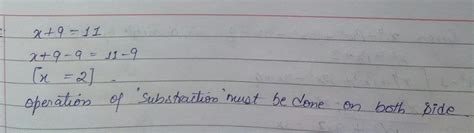 x+9 = 11
x+9-9 = 11-9
[x = 2].
operation of "substraction" must be done on both side